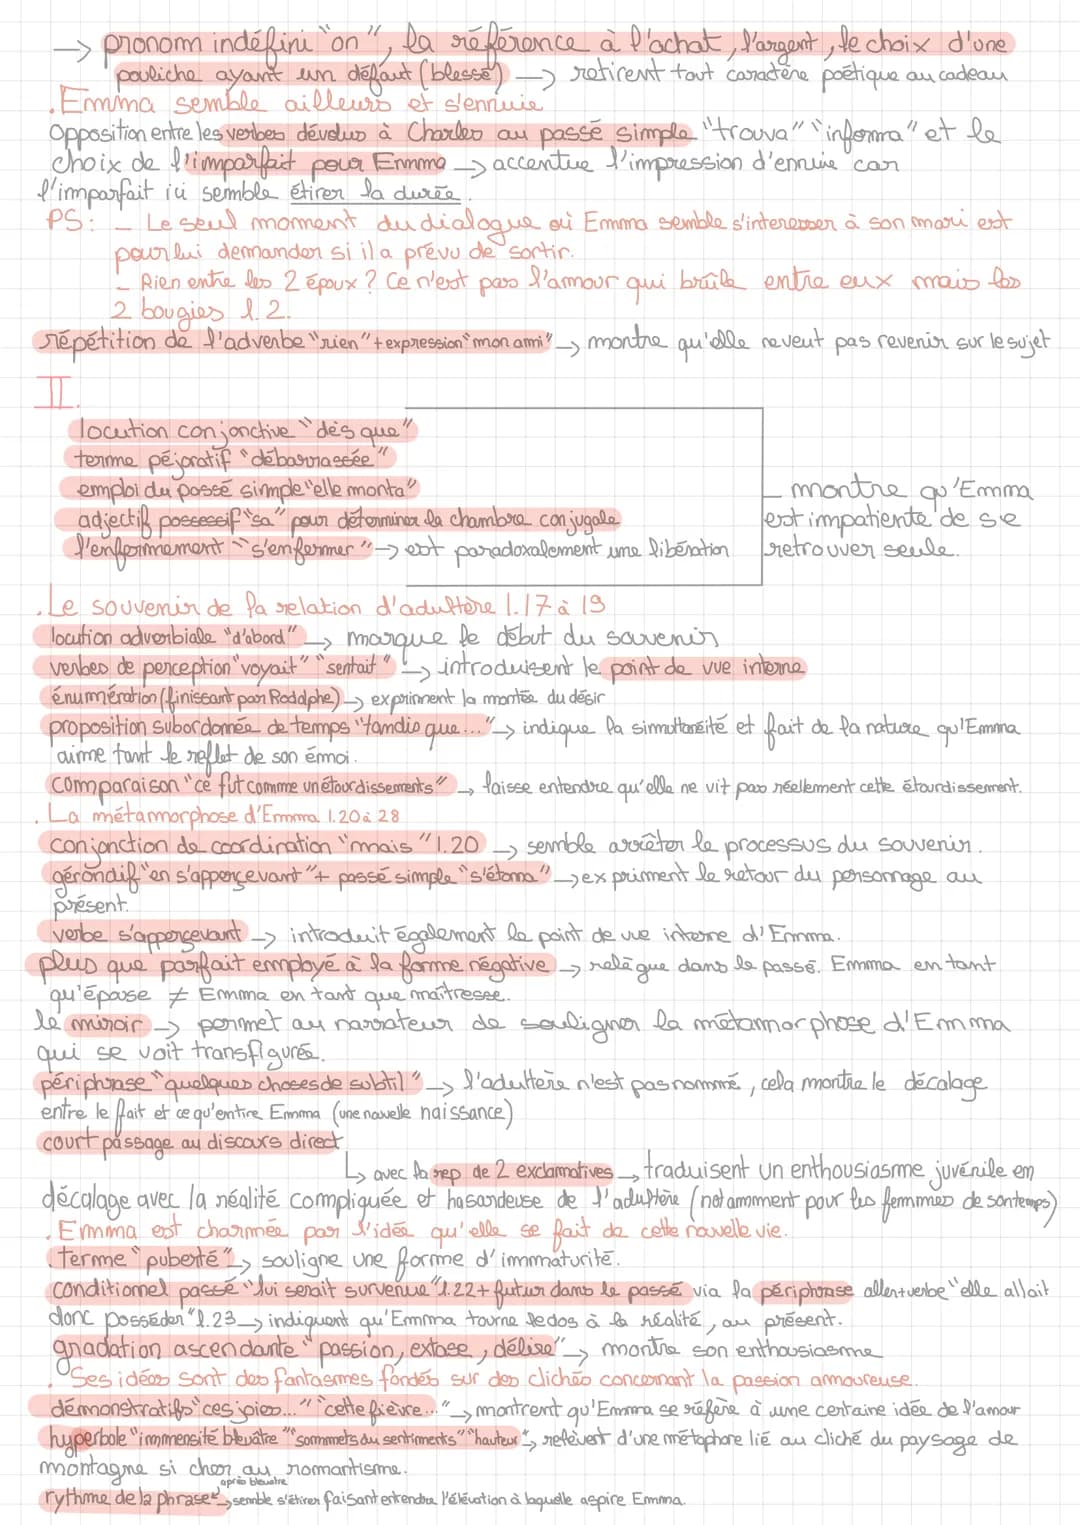 → pronom indéfini "on", la référence à l'achat, l'argent, le choix d'une
pouliche ayant un défaut (blessé) → retirent tout caractère poétique au cadeau
.Emma semble ailleurs et s'ennuie
Opposition entre les verbes dévolus à Charles au passé simple "trouva" "informa" et le
choix de l'imparfait pour Emma → accentue l'impression d'ennuie car
l'imparfait ici semble étirer la durée.
PS: - Le seul moment du dialogue où Emma semble s'interesser à son mari est
pour lui demander si il a prévu de sortir.
- Rien entre les 2 époux ? Ce n'est pas l'amour qui brûle entre eux mais les
2 bougies l.2.
répétition de l'adverbe "rien" + expression "mon ami" → montre qu'elle ne veut pas revenir sur le sujet
II.
locution conjonctive "dès que"
terme péjoratif "débarrassée"
emploi du passé simple "elle monta"
adjectif possessif "sa" pour déterminer la chambre conjugale
l'enfermement "s'enfermer" → est paradoxalement une libération
montre qu'Emma
est impatiente de se
retrouver seule.
.Le souvenir de la relation d'adultère l.17 à 19
locution adverbiale "d'abord" → marque le début du souvenir
verbes de perception "voyait" "sentait" → introduisent le point de vue interne
énumération (finissant par Rodolphe) → expriment la montée du désir
proposition subordonnée de temps "tandis que..." → indique la simultanéité et fait de la nature qu'Emma
aime tant le reflet de son émoi.
comparaison "ce fut comme un étourdissements" → laisse entendre qu'elle ne vit pas réellement cette étourdissement.
. La métamorphose d'Emma l.20 à 28
conjonction de coordination "mais" l.20 → semble arrêter le processus du souvenir.
gérondif "en s'apperçevant" + passé simple "s'étonna" → expriment le retour du personnage au
présent.
verbe s'apperçevant → introduit également le point de vue interne d'Emma.
plus que parfait employé à la forme négative → relègue dans le passé. Emma en tant
qu'épouse ≠ Emma en tant que maîtresse.
le miroir → permet au narrateur de souligner la métamorphose d'Emma
qui se voit transfigurée.
périphrase "quelques choses de subtil" → l'adultère n'est pas nommé, cela montre le décalage
entre le fait et ce qu'en tire Emma (une nouvelle naissance)
court passage au discours direct
↳ avec la rep de 2 exclamatives → traduisent un enthousiasme juvénile en
décalage avec la réalité compliquée et hasardeuse de l'adultère (notamment pour les femmes de son temps)
. Emma est charmée par l'idée qu'elle se fait de cette nouvelle vie.
. terme "puberté" → souligne une forme d'immaturité.
conditionnel passé "lui serait survenue" l.22 + futur dans le passé via la périphrase aller+verbe "elle allait
donc posséder" l.23 → indiquent qu'Emma tourne le dos à la réalité, au présent.
gradation ascendante "passion, extase, délire" → montre son enthousiasme
. Ses idées sont des fantasmes fondés sur des clichés concernant la passion amoureuse.
démonstratifs "ces joies..." "cette fièvre..." → montrent qu'Emma se réfère à une certaine idée de l'amour
hyperbole "immensité bleuâtre" "sommets du sentiments" "hauteur" → relèvent d'une métaphore lié au cliché du paysage de
montagne si cher au romantisme.
après bleuatre
rythme de la phrase → semble s'étirer faisant entendre l'élévation à laquelle aspire Emma.